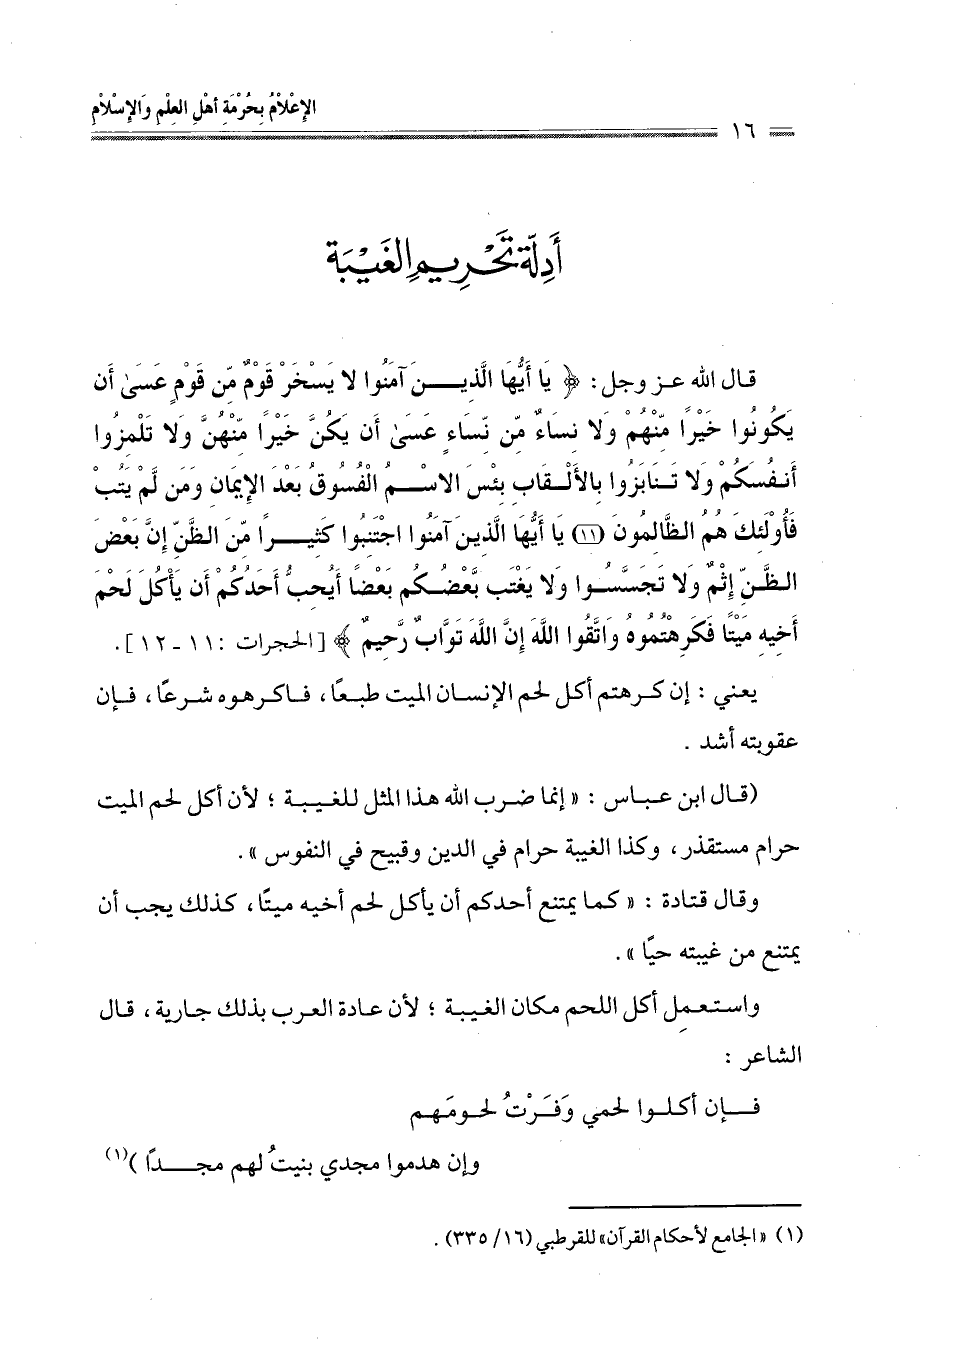 الإِعْلاَمُ بِحُرْمَةِ أَهْلِ العِلْمِ وَالإِسْلاَمِ
١٦
أَدِلَّة تَحْرِيمِ الغَيْبَة
قال الله عز وجل: ﴿ يَا أَيُّهَا الَّذِينَ آمَنُوا لا يَسْخَرْ قَوْمٌ مِّن قَوْمٍ عَسَىٰ أَن
يَكُونُوا خَيْرًا مِّنْهُمْ وَلا نِسَاءٌ مِّن نِّسَاءٍ عَسَىٰ أَن يَكُنَّ خَيْرًا مِّنْهُنَّ وَلا تَلْمِزُوا
أَنفُسَكُمْ وَلا تَنَابَزُوا بِالأَلْقَابِ بِئْسَ الاسْمُ الْفُسُوقُ بَعْدَ الإِيمَانِ وَمَن لَّمْ يَتُبْ
فَأُوْلَئِكَ هُمُ الظَّالِمُونَ (١١) يَا أَيُّهَا الَّذِينَ آمَنُوا اجْتَنِبُوا كَثِيرًا مِّنَ الظَّنِّ إِنَّ بَعْضَ
الظَّنِّ إِثْمٌ وَلا تَجَسَّسُوا وَلا يَغْتَب بَّعْضُكُم بَعْضًا أَيُحِبُّ أَحَدُكُمْ أَن يَأْكُلَ لَحْمَ
أَخِيهِ مَيْتًا فَكَرِهْتُمُوهُ وَاتَّقُوا اللَّهَ إِنَّ اللَّهَ تَوَّابٌ رَّحِيمٌ ﴾ [الحجرات : ١١ - ١٢].
يعني : إن كرهتم أكل لحم الإنسان الميت طبعًا، فاكرهوه شرعًا، فإن
عقوبته أشد .
(قال ابن عباس : « إنما ضرب الله هذا المثل للغيبة ؛ لأن أكل لحم الميت
حرام مستقذر، وكذا الغيبة حرام في الدين وقبيح في النفوس ».
وقال قتادة : « كما يمتنع أحدكم أن يأكل لحم أخيه ميتًا، كذلك يجب أن
يمتنع من غيبته حيًا ».
واستعمل أكل اللحم مكان الغيبة ؛ لأن عادة العرب بذلك جارية، قال
الشاعر :
فإن أكلوا لحمي وَفَرْتُ لحومَهم
وإن هدموا مجدي بنيتُ لهم مجدًا )(١)
(١) «الجامع لأحكام القرآن» للقرطبي (١٦/ ٣٣٥) .